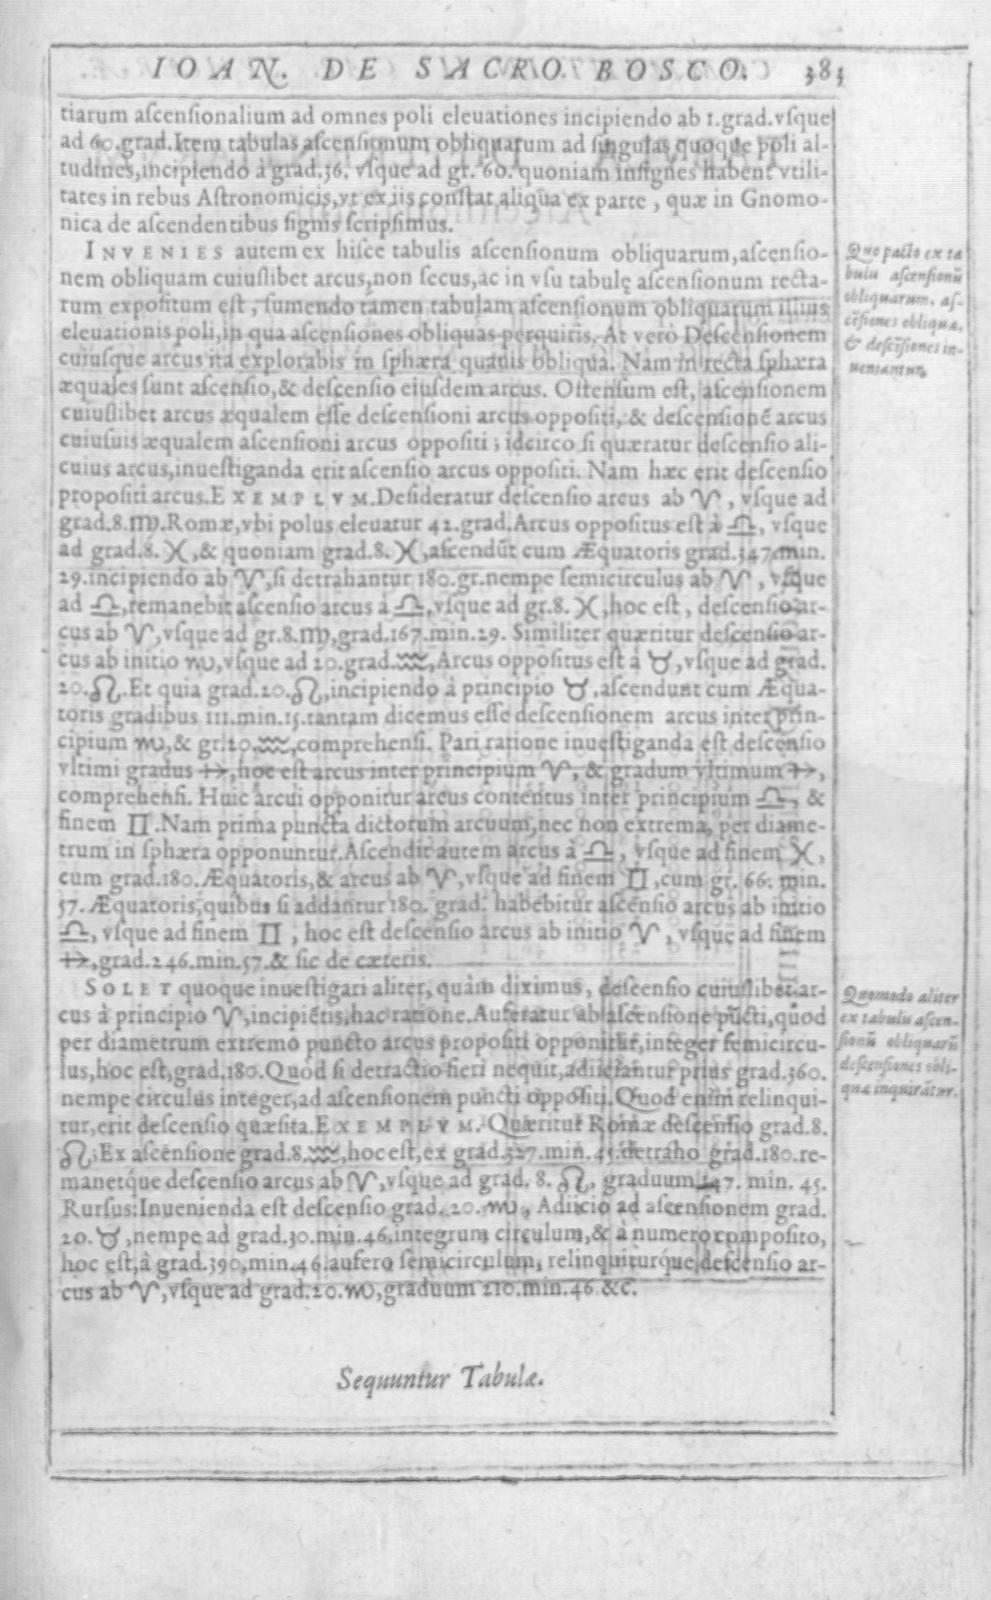 IOAN. DE SACRO BOSCO. 383
tiarum ascensionalium ad omnes poli eleuationes incipiendo ab 1.grad.vsque
ad 60.grad.Item tabulas ascensionum obliquarum ad singulas quoque poli al-
tudines,incipiendo à grad.36. vsque ad gr. 60. quoniam insignes habent vtili-
tates in rebus Astronomicis,vt ex iis constat aliqua ex parte , quæ in Gnomo-
nica de ascendentibus signis scripsimus.
INVENIES autem ex hisce tabulis ascensionum obliquarum,ascensio-
nem obliquam cuiuslibet arcus,non secus,ac in vsu tabulę ascensionum recta-
rum expositum est , sumendo tamen tabulam ascensionum obliquarum illius
eleuationis poli,in qua ascensiones obliquas perquiris. At verò Descensionem
cuiusque arcus ita explorabis in sphæra quauis obliqua. Nam in recta sphæra
æquales sunt ascensio,& descensio eiusdem arcus. Ostensum est, ascensionem
cuiuslibet arcus æqualem esse descensioni arcus oppositi, & descensionē arcus
cuiusuis æqualem ascensioni arcus oppositi ; idcirco si quæratur descensio ali-
cuius arcus,inuestiganda erit ascensio arcus oppositi. Nam hæc erit descensio
propositi arcus.EXEMPLVM.Desideratur descensio arcus ab ♈, vsque ad
grad.8.♍.Romæ,vbi polus eleuatur 42.grad.Arcus oppositus est à ♎, vsque
ad grad.8. ♓,& quoniam grad.8. ♓,ascendūt cum Æquatoris grad.347.min.
29.incipiendo ab ♈,si detrahantur 180.gr.nempe semicirculus ab ♈, vsque
ad ♎,remanebit ascensio arcus à ♎,vsque ad gr.8. ♓,hoc est, descensio ar-
cus ab ♈,vsque ad gr.8.♍,grad.167.min.29. Similiter quæritur descensio ar-
cus ab initio ♏,vsque ad 20.grad.♒,Arcus oppositus est à ♉,vsque ad grad.
20.♌.Et quia grad.20.♌,incipiendo à principio ♉,ascendunt cum Æqua-
toris gradibus 111.min.15.tantam dicemus esse descensionem arcus inter prin-
cipium ♏,& gr.20.♒,comprehensi. Pari ratione inuestiganda est descensio
vltimi gradus ♐,hoc est arcus inter principium ♈, & gradum vltimum ♐,
comprehensi. Huic arcui opponitur arcus contentus inter principium ♎, &
finem ♊.Nam prima puncta dictorum arcuum,nec non extrema, per diame-
trum in sphæra opponuntur.Ascendit autem arcus à ♎, vsque ad finem ♓,
cum grad.180. Æquatoris,& arcus ab ♈,vsque ad finem ♊,cum gr. 66. min.
57.Æquatoris,quibus si addantur 180. grad. habebitur ascensio arcus ab initio
♎, vsque ad finem ♊ , hoc est descensio arcus ab initio ♈, vsque ad finem
♐,grad.246.min.57.& sic de cæteris.
SOLET quoque inuestigari aliter, quàm diximus, descensio cuiuslibet ar-
cus à principio ♈,incipiētis,hac ratione.Auferatur ab ascensione pūcti,quod
per diametrum extremo puncto arcus propositi opponitur,integer semicircu-
lus,hoc est,grad.180.Quòd si detractio fieri nequit,adiiciantur prius grad.360.
nempe circulus integer,ad ascensionem puncti oppositi.Quod enim relinqui-
tur,erit descensio quæsita.EXEMPLVM.Quæritur Romæ descensio grad.8.
♌.Ex ascensione grad.8.♒,hoc est, ex grad.327.min. 45.detraho grad.180.re-
manetque descensio arcus ab ♈,vsque ad grad. 8. ♌, graduum 147. min. 45.
Rursus:Inuenienda est descensio grad. 20.♏, Adiicio ad ascensionem grad.
20.♉,nempe ad grad.30.min.46,integrum circulum,& à numero composito,
hoc est,à grad.390,min.46.aufero semicirculum, relinquiturque descensio ar-
cus ab ♈,vsque ad grad.20.♏,graduum 210.min.46 &c.
Sequuntur Tabulæ.
Quo pacto ex ta
bulis ascensionū
obliquarum, as-
cēsiones obliquæ,
& descēsiones in-
ueniantur.
Quomodo aliter
ex tabulis ascen-
sionū obliquarū
descensiones obli-
quæ inquirātur.